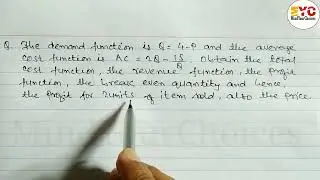 SYC
Q. The demand function is Q = 4-P and the average
cost function is AC = 2Q - 15/Q. Obtain the total
cost function, the revenue function, the profit
function, the break even quantity and hence
the profit for 2 units of item sold, also the price.